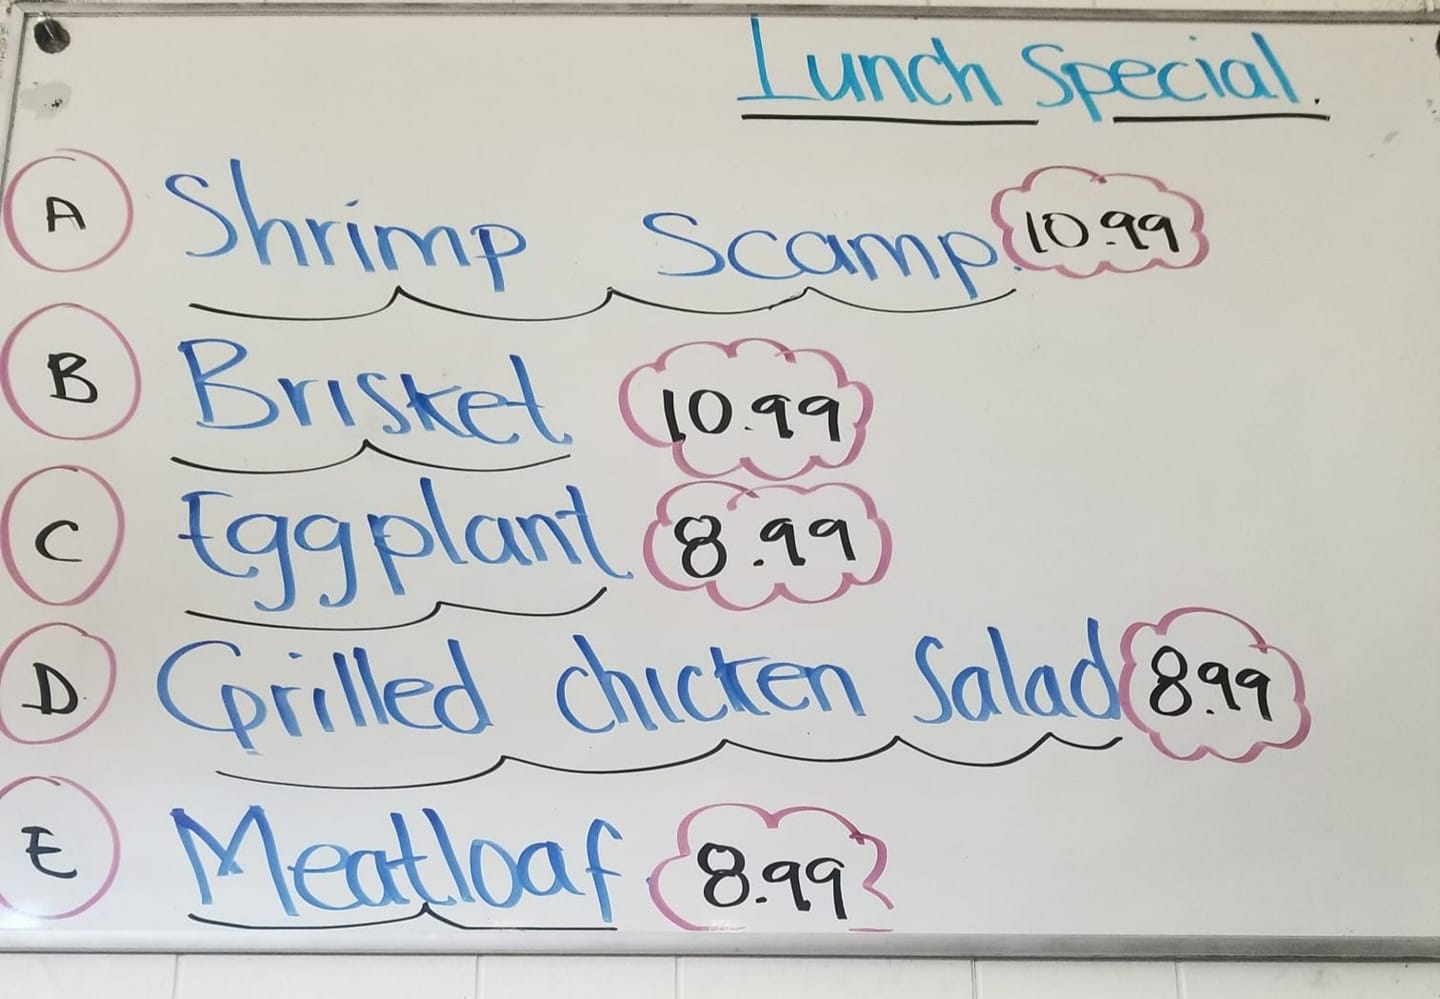 Lunch Special.
A Shrimp Scamp. 10.99
B Brisket 10.99
C Eggplant 8.99
D Grilled chicken Salad 8.99
E Meatloaf 8.99